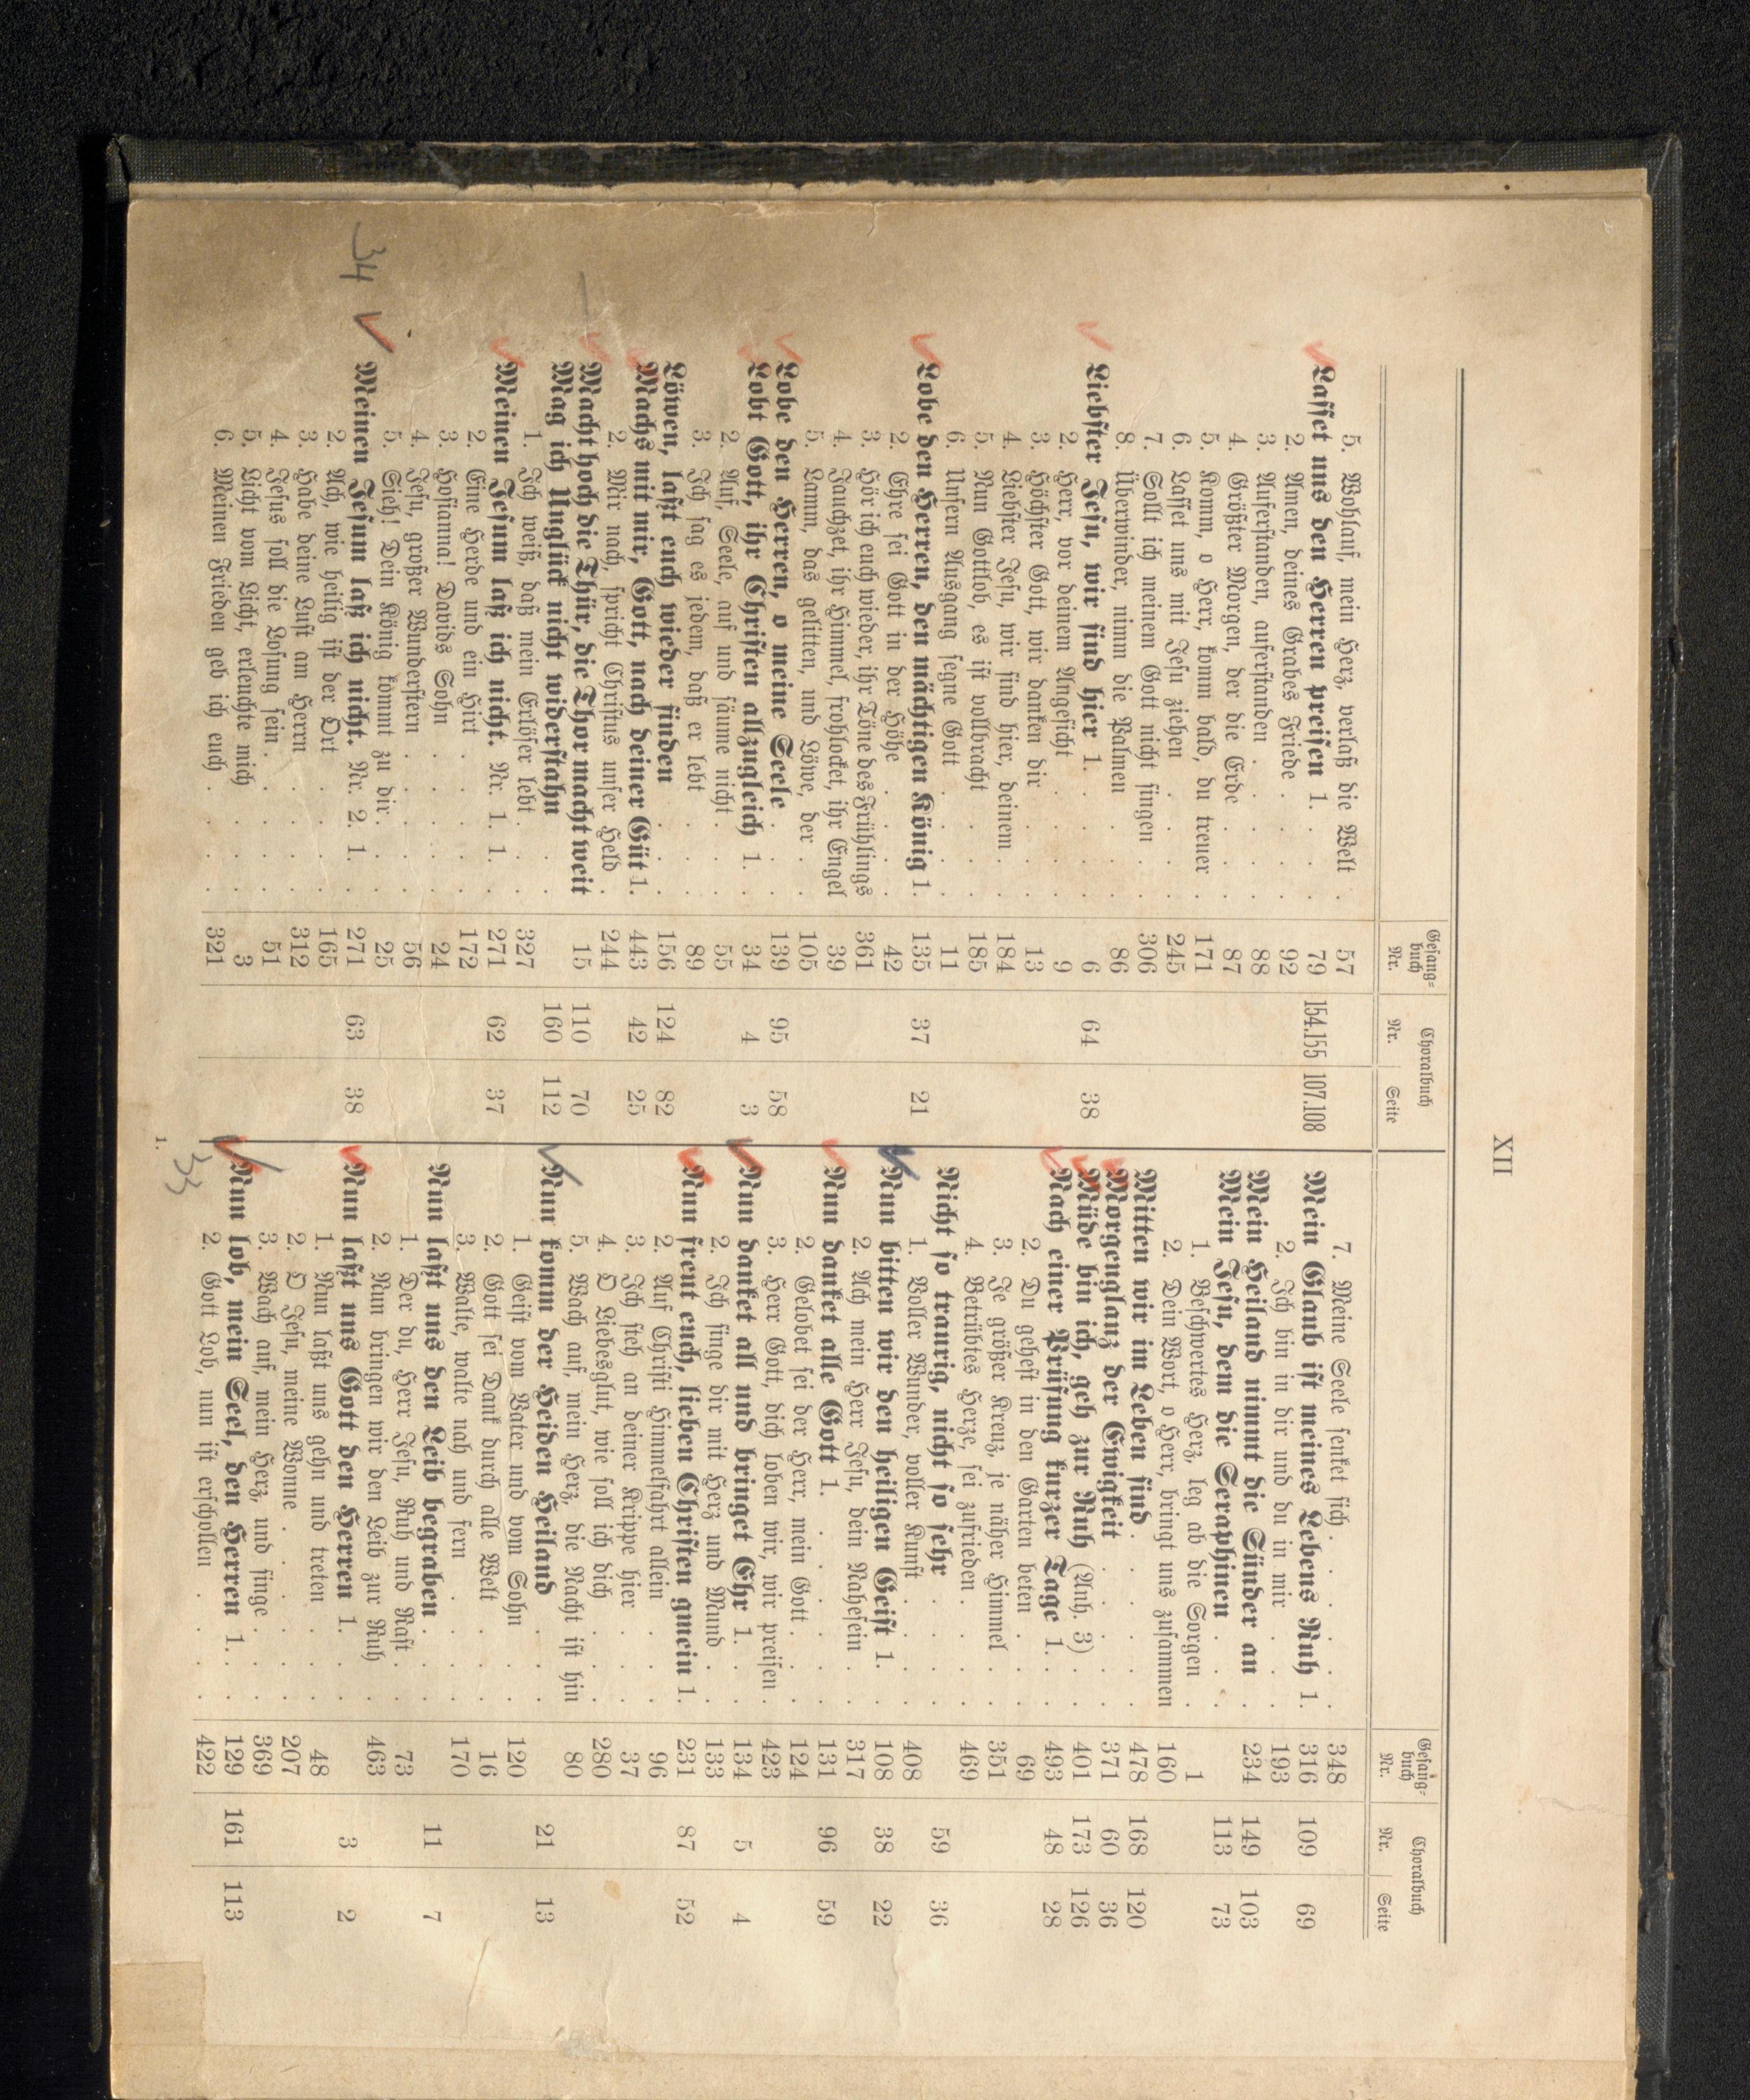 XII
Gesang-
buch
Nr.
Choralbuch
Nr.
Seite
5. Wohlauf, mein Herz, verlaß die Welt . 57
Lasset uns den Herren preisen 1. . . 79 154.155 107.108
2. Amen, deines Grabes Friede . . . 92
3. Auferstanden, auferstanden . . . 88
4. Größter Morgen, der die Erde . . . 87
5. Komm, o Herr, komm bald, du treuer . 171
6. Lasset uns mit Jesu ziehen . . . 245
7. Sollt ich meinem Gott nicht singen . 306
8. Überwinder, nimm die Palmen . . 86
Liebster Jesu, wir sind hier 1. . . . 6 64 38
2. Herr, vor deinem Angesicht . . . 9
3. Höchster Gott, wir danken dir . . 13
4. Liebster Jesu, wir sind hier, deinem . 184
5. Nun Gottlob, es ist vollbracht . . 185
6. Unsern Ausgang segne Gott . . . 11
Lobe den Herren, den mächtigen König 1. 135 37 21
2. Ehre sei Gott in der Höhe . . . 42
3. Hör ich euch wieder, ihr Töne des Frühlings 361
4. Jauchzet, ihr Himmel, frohlocket, ihr Engel 39
5. Lamm, das gelitten, und Löwe, der . 105
Lobe den Herren, o meine Seele . . . 139 95 58
Lobt Gott, ihr Christen allzugleich 1. . 34 4 3
2. Auf, Seele, auf und säume nicht . . 55
3. Ich sag es jedem, daß er lebt . . . 89
Löwen, laßt euch wieder finden . . . 156 124 82
Machs mit mir, Gott, nach deiner Güt 1. 443 42 25
2. Mir nach, spricht Christus unser Held . 244
Macht hoch die Thür, die Thor macht weit 15 110 70
Mag ich Unglück nicht widerstahn . . 160 112
1. Ich weiß, daß mein Erlöser lebt . . 327
Meinen Jesum laß ich nicht. Nr. 1. 1. . 271 62 37
2. Eine Herde und ein Hirt . . . . 172
3. Hosianna! Davids Sohn . . . . 24
4. Jesu, großer Wunderstern . . . . 56
5. Sieh! Dein König kommt zu dir . . 25
34 Meinen Jesum laß ich nicht. Nr. 2. 1. . 271 63 38
2. Ach, wie heilig ist der Ort . . . 165
3. Habe deine Lust am Herrn . . . 312
4. Jesus soll die Losung sein . . . . 51
5. Licht vom Licht, erleuchte mich . . 3
6. Meinen Frieden geb ich euch . . . 321
Gesang-
buch
Nr.
Choralbuch
Nr.
Seite
7. Meine Seele senket sich . . . . 348
Mein Glaub ist meines Lebens Ruh 1. 316 109 69
2. Ich bin in dir und du in mir . . 193
Mein Heiland nimmt die Sünder an . 234 149 103
Mein Jesu, dem die Seraphinen . . . 113 73
1. Beschwertes Herz, leg ab die Sorgen . 1
2. Dein Wort, o Herr, bringt uns zusammen 160
Mitten wir im Leben sind . . . . 478 168 120
Morgenglanz der Ewigkeit . . . . 371 60 36
Müde bin ich, geh zur Ruh (Anh. 3) . 401 173 126
Nach einer Prüfung kurzer Tage 1. . . 493 48 28
2. Du gehest in den Garten beten . . 69
3. Je größer Kreuz, je näher Himmel . . 351
4. Betrübtes Herze, sei zufrieden . . . 469
Nicht so traurig, nicht so sehr . . . 59 36
1. Voller Wunder, voller Kunst . . . 408
Nun bitten wir den heiligen Geist 1. . 108 38 22
2. Ach mein Herr Jesu, dein Nahesein . 317
Nun danket alle Gott 1. . . . . 131 96 59
2. Gelobet sei der Herr, mein Gott . . 124
3. Herr Gott, dich loben wir, wir preisen . 423
Nun danket all und bringet Ehr 1. . . 134 5 4
2. Ich singe dir mit Herz und Mund . . 133
Nun freut euch, lieben Christen gmein 1. 231 87 52
2. Auf Christi Himmelfahrt allein . . 96
3. Ich steh an deiner Krippe hier . . 37
4. O Liebesglut, wie soll ich dich . . 280
5. Wach auf, mein Herz, die Nacht ist hin 80
Nun komm der Heiden Heiland . . . 21 13
1. Geist vom Vater und vom Sohn . . 120
2. Gott sei Dank durch alle Welt . . 16
3. Walte, walte nah und fern . . . 170
Nun laßt uns den Leib begraben . . . 11 7
1. Der du, Herr Jesu, Ruh und Rast . . 73
2. Nun bringen wir den Leib zur Ruh . 463
Nun laßt uns Gott den Herren 1. . . 3 2
1. Nun laßt uns gehn und treten . . 48
2. O Jesu, meine Wonne . . . . 207
3. Wach auf, mein Herz, und singe . . 369
33 Nun lob, mein Seel, den Herren 1. . . 129 161 113
2. Gott Lob, nun ist erschollen . . . 422
1.